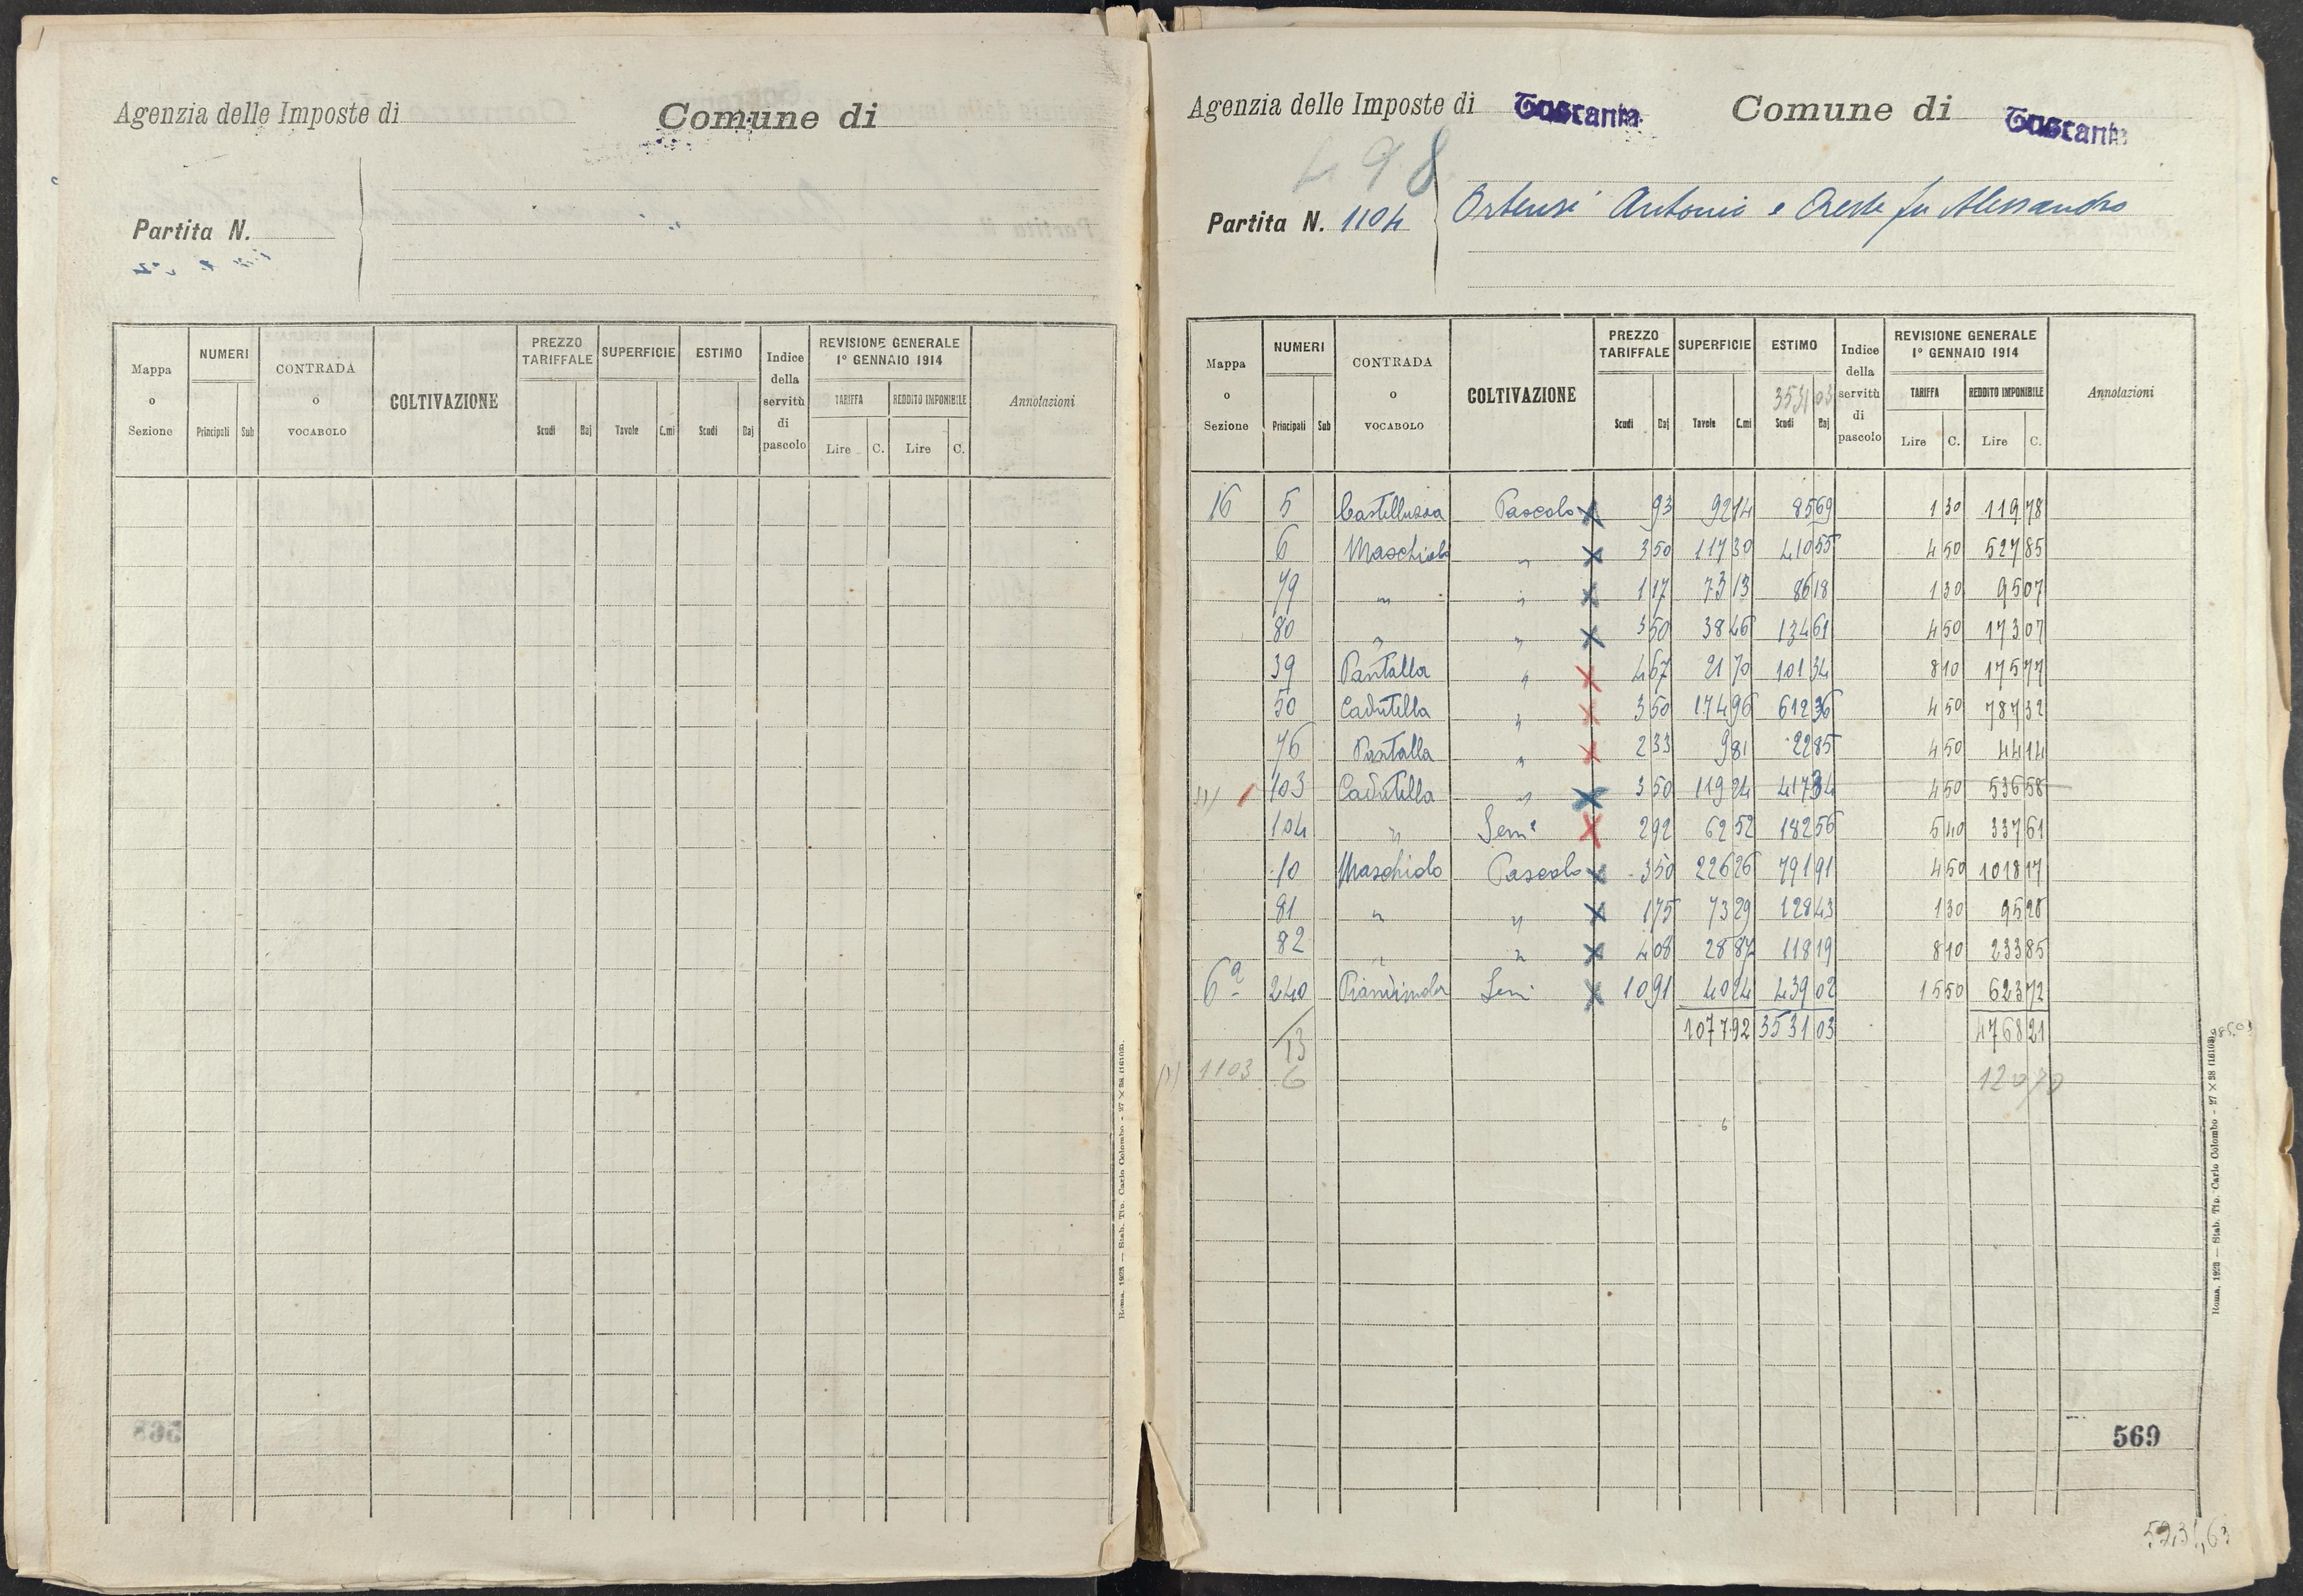 Agenzia delle Imposte di
Comune di
Partita N.
Mappa o Sezione
NUMERI
Principali Sub
CONTRADA O VOCABOLO
COLTIVAZIONE
PREZZO TARIFFALE
Scudi Baj
SUPERFICIE
Tavole C.mi
ESTIMO
Scudi Baj
Indice della servitù di pascolo
REVISIONE GENERALE 1° GENNAIO 1914
TARIFFA
Lire C.
REDDITO IMPONIBILE
Lire C.
Annotazioni
Roma, 1923 — Stab. Tip. Carlo Colombo - 27 × 38 (16103).
Agenzia delle Imposte di Tuscania
Comune di Tuscania
498
Partita N. 1104
Ortensi Antonio e Oreste fu Alessandro
Mappa o Sezione
NUMERI
Principali Sub
CONTRADA O VOCABOLO
COLTIVAZIONE
PREZZO TARIFFALE
Scudi Baj
SUPERFICIE
Tavole C.mi
ESTIMO
3531 03
Scudi Baj
Indice della servitù di pascolo
REVISIONE GENERALE 1° GENNAIO 1914
TARIFFA
Lire C.
REDDITO IMPONIBILE
Lire C.
Annotazioni
16 5 Castelluzza Pascolo X 93 92 14 85 69 1 30 119 78
6 Maschiolo " X 3 50 117 30 410 55 4 50 527 85
79 " " X 1 17 73 13 86 18 1 30 95 07
80 " " X 3 50 38 46 134 61 4 50 173 07
39 Pantalla " X 4 67 21 70 101 34 8 10 175 77
50 Cadutella " X 3 50 174 96 612 36 4 50 787 32
76 Pantalla " X 2 33 9 81 22 85 4 50 44 14
103 Cadutella " X 3 50 119 24 417 34 4 50 536 58
104 " Semi X 2 92 62 52 182 56 5 40 337 61
10 Maschiolo Pascolo X 3 50 226 26 791 91 4 50 1018 17
81 " " X 1 75 73 29 128 43 1 30 95 28
82 " " X 4 08 28 87 118 19 8 10 233 85
6a 240 Piandimola Sem X 10 91 40 24 439 02 15 50 623 72
1077 92 3531 03 4768 21
13
1103 6
120 70
569
Roma, 1923 — Stab. Tip. Carlo Colombo - 27 × 38 (16103).